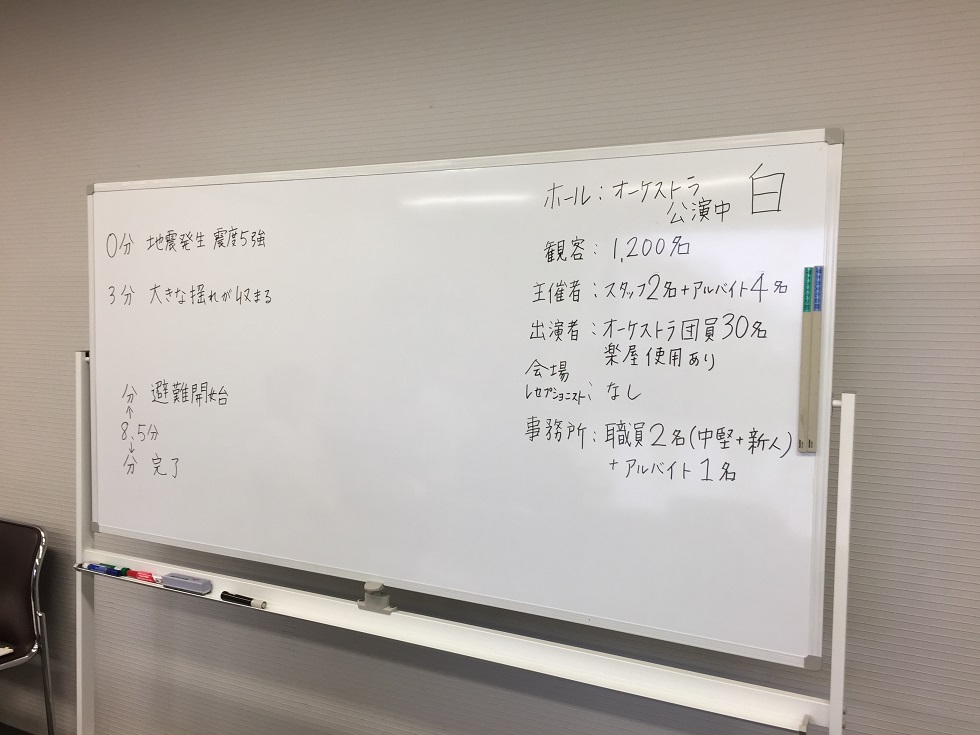 0分 地震発生 震度5強
3分 大きな揺れが収まる
分 避難開始
↑
8.5分
↓
分 完了
ホール：オーケストラ
公演中
白
観客：1,200名
主催者：スタッフ2名+アルバイト4名
出演者：オーケストラ団員30名
楽屋使用あり
会場
レセプショニスト：なし
事務所：職員2名(中堅+新人)
+アルバイト1名